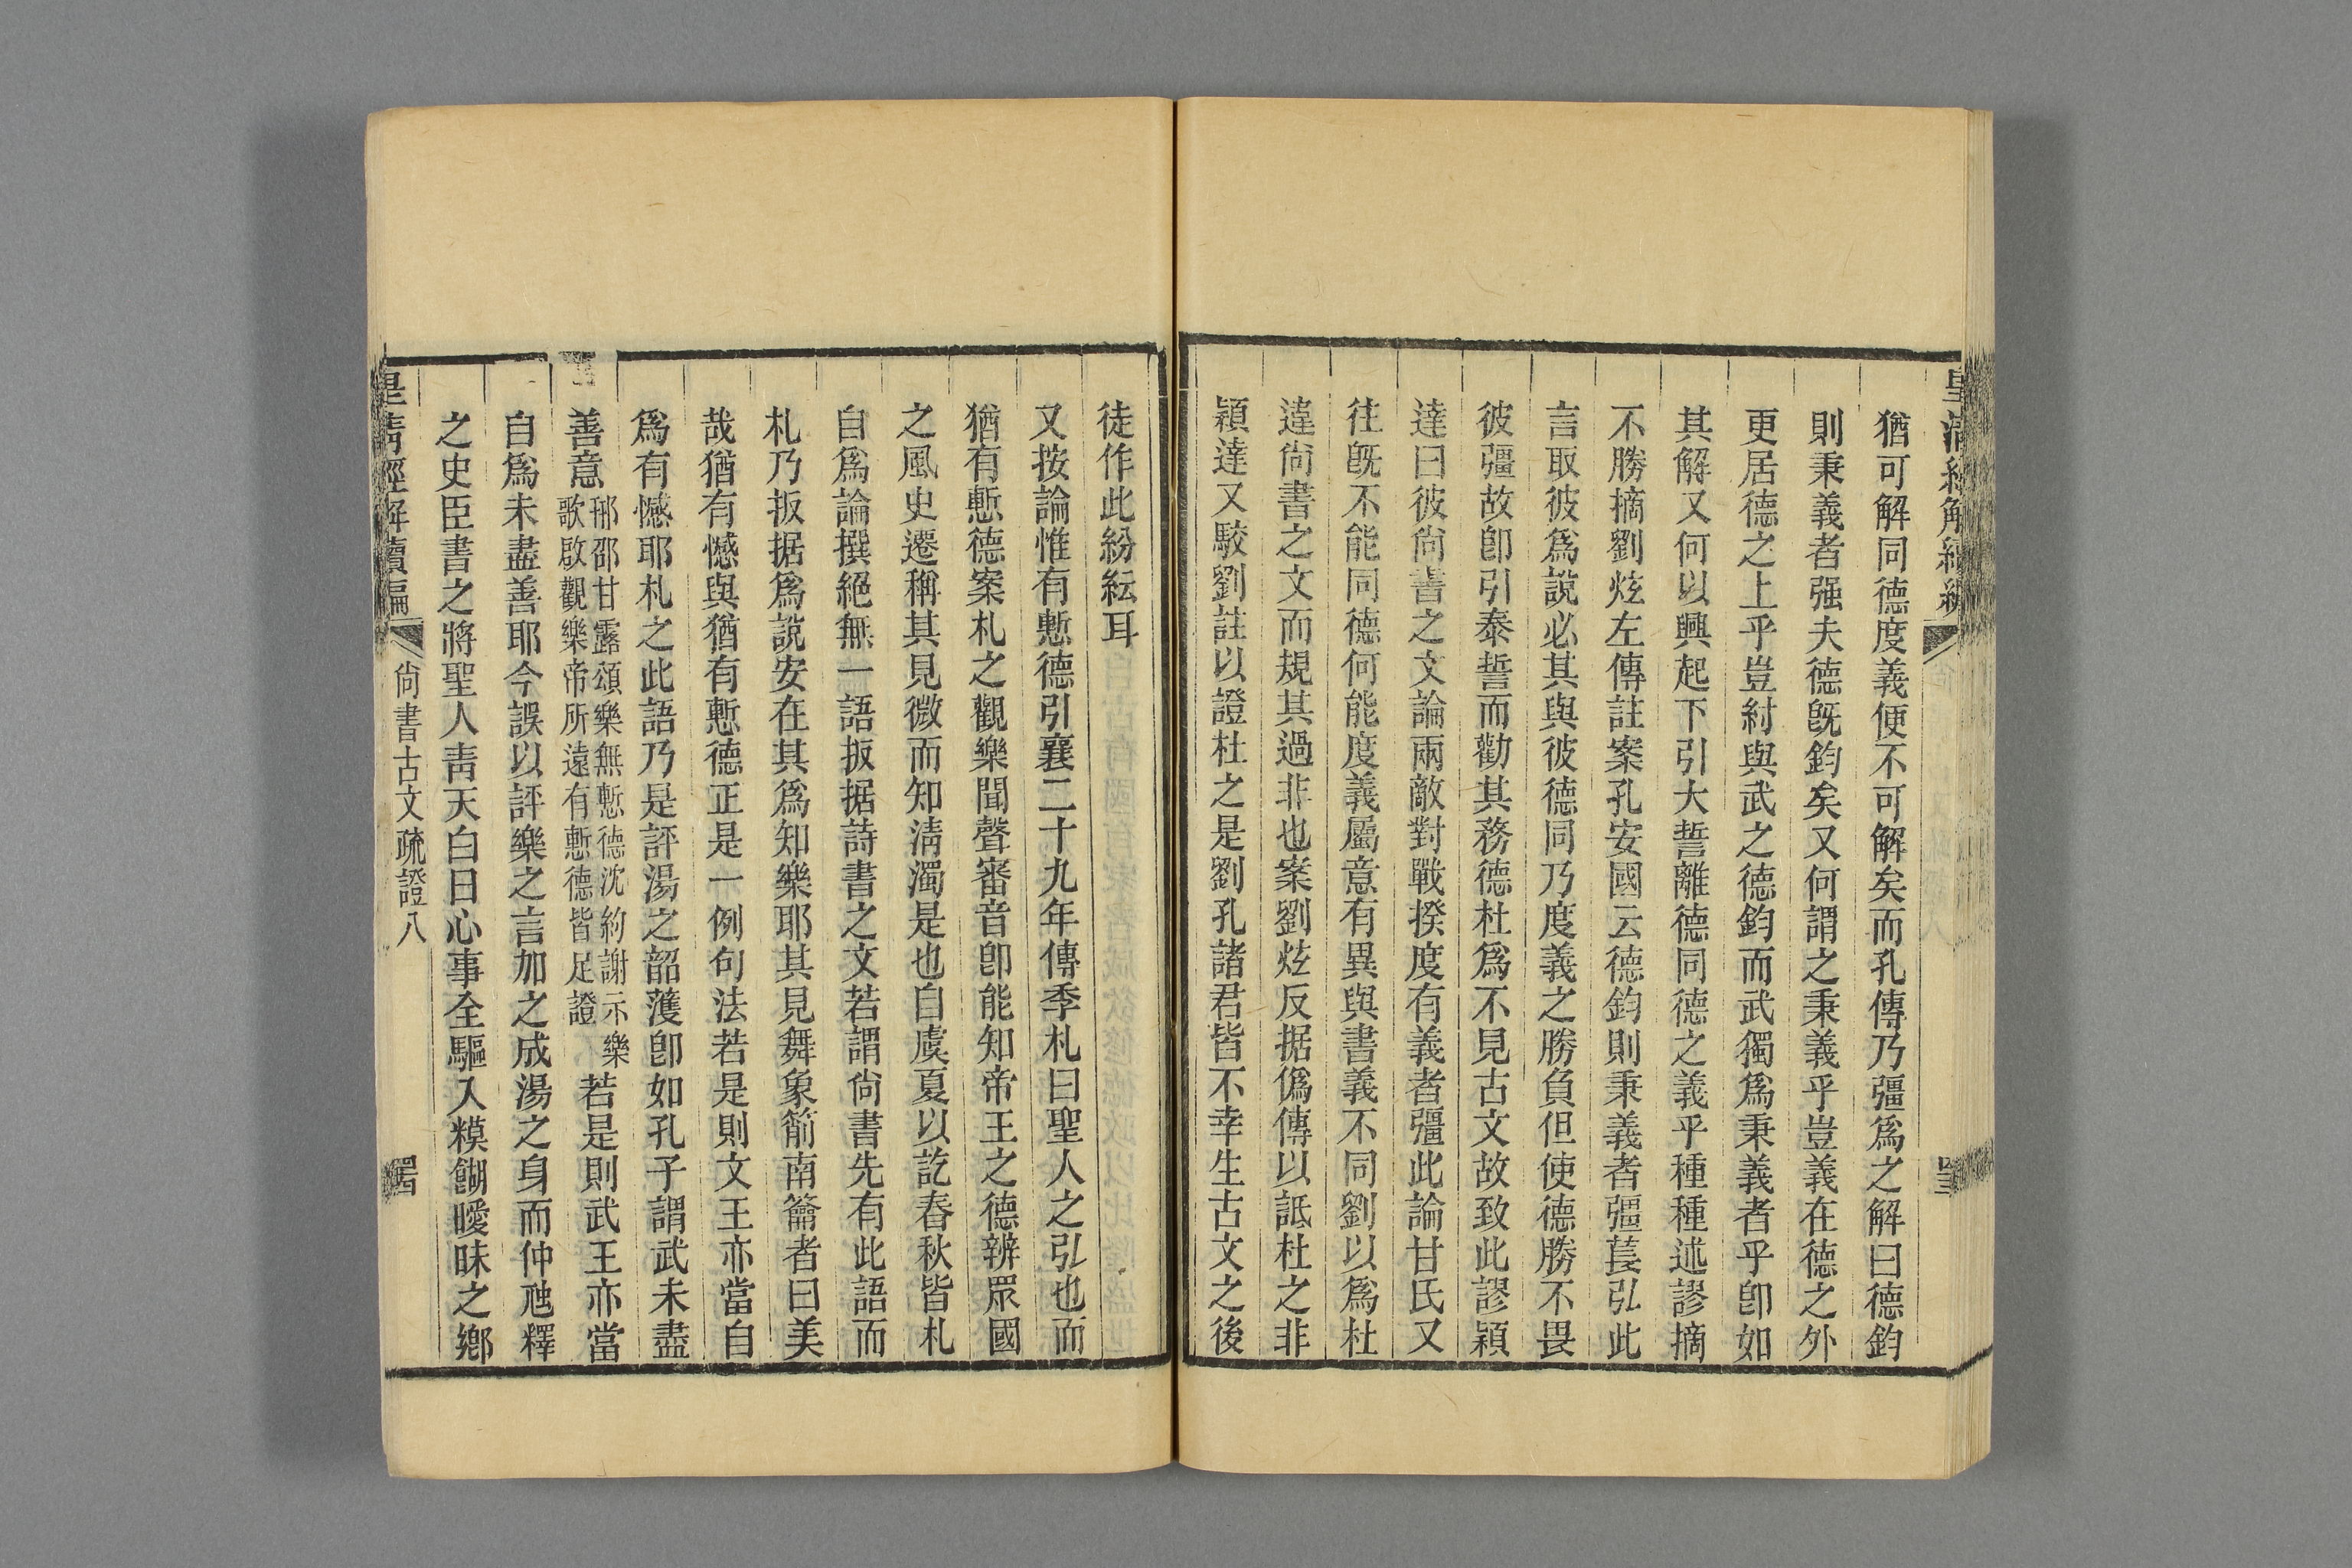 猶可解同德度義便不可解矣而孔傳乃彊爲之解曰德鈞
則秉義者强夫德旣鈞矣又何謂之秉義乎豈義在德之外
更居德之上乎豈紂與武之德鈞而武獨爲秉義者乎卽如
其解又何以興起下引大誓離德同德之義乎種種述謬摘
不勝摘劉炫左傳註案孔安國云德鈞則秉義者彊萇弘此
言取彼爲說必其與彼德同乃度義之勝負但使德勝不畏
彼彊故卽引泰誓而勸其務德杜爲不見古文故致此謬穎
達曰彼尙書之文論兩敵對戰揆度有義者彊此論甘氏又
往旣不能同德何能度義屬意有異與書義不同劉以爲杜
違尙書之文而規其過非也案劉炫反据僞傳以詆杜之非
穎達又駮劉註以證杜之是劉孔諸君皆不幸生古文之後
徒作此紛紜耳
又按論惟有慙德引襄二十九年傳季札曰聖人之弘也而
猶有慙德案札之觀樂聞聲審音卽能知帝王之德辨眾國
之風史遷稱其見微而知淸濁是也自虞夏以訖春秋皆札
自爲論撰絕無一語扳据詩書之文若謂尙書先有此語而
札乃扳据爲說安在其爲知樂耶其見舞象箾南籥者曰美
哉猶有憾與猶有慙德正是一例句法若是則文王亦當自
爲有憾耶札之此語乃是評湯之韶濩卽如孔子謂武未盡
善意邢邵甘露頌樂無慙德沈約謝示樂歌啟觀樂帝所遠有慙德皆足證若是則武王亦當
自爲未盡善耶今誤以評樂之言加之成湯之身而仲虺釋
之史臣書之將聖人靑天白日心事全驅入糢餬曖昧之鄕
皇淸經解續編
尙書古文疏證八